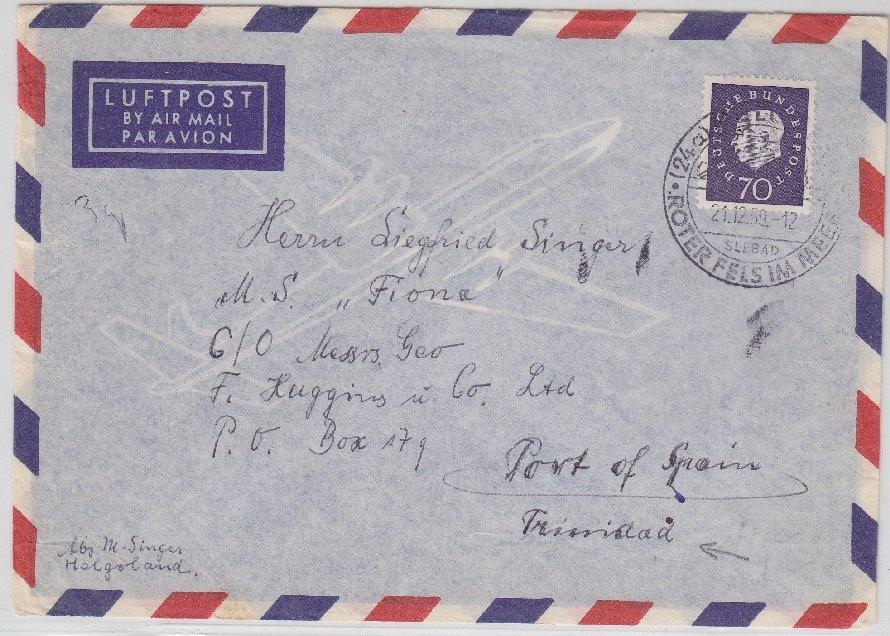 LUFTPOST
BY AIR MAIL
PAR AVION
DEUTSCHE BUNDESPOST
70
(24a)
21.12.59.-12
SEEBAD
ROTER FELS IM MEER
Herrn Siegfried Singer
M.S. „Fiona"
C/O Messrs. Geo
F. Huggins u. Co. Ltd
P.O. Box 179
Port of Spain
Trinidad
Abs M. Singer
Helgoland.